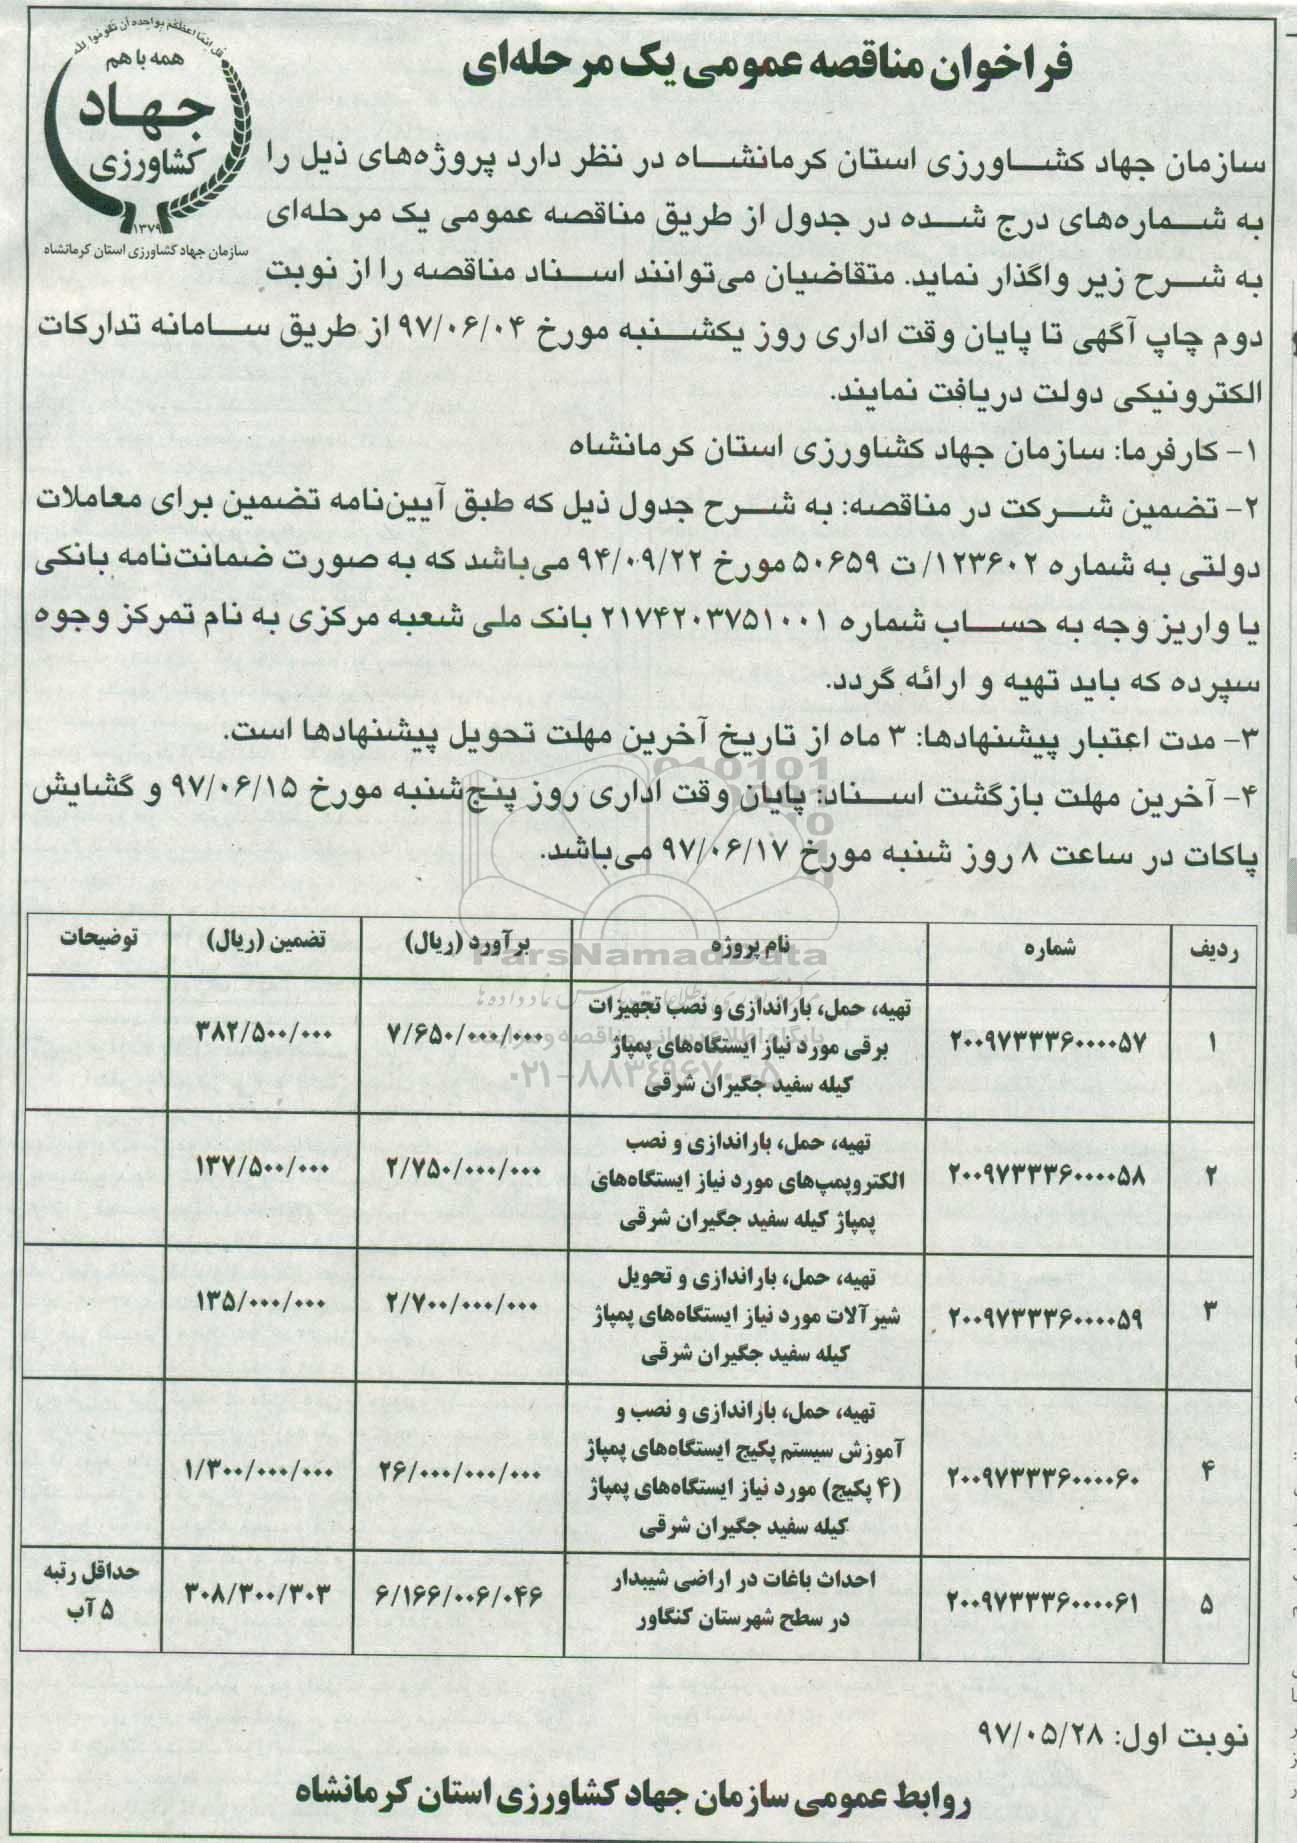 قل انما اعظکم بواحده ان تقوموا لله
همه با هم
جهاد
کشاورزی
۱۳۷۹
سازمان جهاد کشاورزی استان کرمانشاه
فراخوان مناقصه عمومی یک مرحله‌ای
سازمان جهاد کشاورزی استان کرمانشاه در نظر دارد پروژه‌های ذیل را
به شماره‌های درج شده در جدول از طریق مناقصه عمومی یک مرحله‌ای
به شرح زیر واگذار نماید. متقاضیان می‌توانند اسناد مناقصه را از نوبت
دوم چاپ آگهی تا پایان وقت اداری روز یکشنبه مورخ ۹۷/۰۶/۰۴ از طریق سامانه تدارکات
الکترونیکی دولت دریافت نمایند.
۱- کارفرما: سازمان جهاد کشاورزی استان کرمانشاه
۲- تضمین شرکت در مناقصه: به شرح جدول ذیل که طبق آیین‌نامه تضمین برای معاملات
دولتی به شماره ۱۲۳۶۰۲/ ت ۵۰۶۵۹ مورخ ۹۴/۰۹/۲۲ می‌باشد که به صورت ضمانت‌نامه بانکی
یا واریز وجه به حساب شماره ۲۱۷۴۲۰۳۷۵۱۰۰۱ بانک ملی شعبه مرکزی به نام تمرکز وجوه
سپرده که باید تهیه و ارائه گردد.
۳- مدت اعتبار پیشنهادها: ۳ ماه از تاریخ آخرین مهلت تحویل پیشنهادها است.
۴- آخرین مهلت بازگشت اسناد: پایان وقت اداری روز پنج‌شنبه مورخ ۹۷/۰۶/۱۵ و گشایش
پاکات در ساعت ۸ روز شنبه مورخ ۹۷/۰۶/۱۷ می‌باشد.
ردیف شماره نام پروژه برآورد (ریال) تضمین (ریال) توضیحات
۱ ۲۰۰۹۷۳۳۳۶۰۰۰۰۵۷ تهیه، حمل، باراندازی و نصب تجهیزات
برقی مورد نیاز ایستگاه‌های پمپاژ
کیله سفید جگیران شرقی ۷/۶۵۰/۰۰۰/۰۰۰ ۳۸۲/۵۰۰/۰۰۰
۲ ۲۰۰۹۷۳۳۳۶۰۰۰۰۵۸ تهیه، حمل، باراندازی و نصب
الکتروپمپ‌های مورد نیاز ایستگاه‌های
پمپاژ کیله سفید جگیران شرقی ۲/۷۵۰/۰۰۰/۰۰۰ ۱۳۷/۵۰۰/۰۰۰
۳ ۲۰۰۹۷۳۳۳۶۰۰۰۰۵۹ تهیه، حمل، باراندازی و تحویل
شیرآلات مورد نیاز ایستگاه‌های پمپاژ
کیله سفید جگیران شرقی ۲/۷۰۰/۰۰۰/۰۰۰ ۱۳۵/۰۰۰/۰۰۰
۴ ۲۰۰۹۷۳۳۳۶۰۰۰۰۶۰ تهیه، حمل، باراندازی و نصب و
آموزش سیستم پکیج ایستگاه‌های پمپاژ
(۴ پکیج) مورد نیاز ایستگاه‌های پمپاژ
کیله سفید جگیران شرقی ۲۶/۰۰۰/۰۰۰/۰۰۰ ۱/۳۰۰/۰۰۰/۰۰۰
۵ ۲۰۰۹۷۳۳۳۶۰۰۰۰۶۱ احداث باغات در اراضی شیبدار
در سطح شهرستان کنگاور ۶/۱۶۶/۰۰۶/۰۴۶ ۳۰۸/۳۰۰/۳۰۳ حداقل رتبه
۵ آب
ParsNamadData
۰۲۱-۸۸۳۴۹۶۷۰-۵
نوبت اول: ۹۷/۰۵/۲۸
روابط عمومی سازمان جهاد کشاورزی استان کرمانشاه